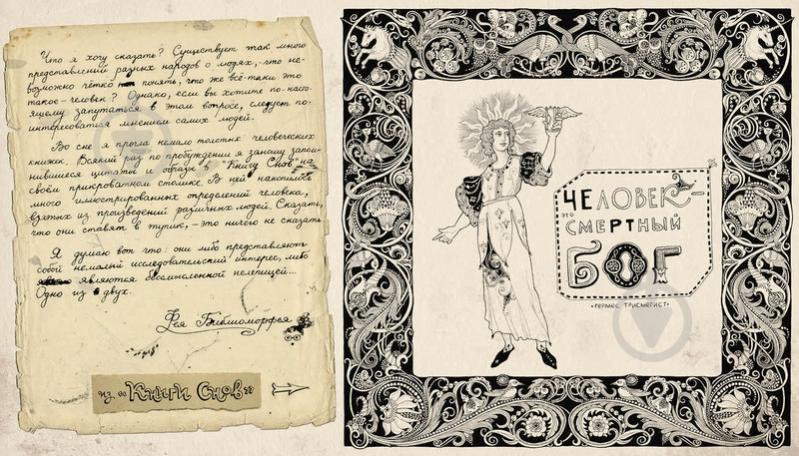 Что я хочу сказать? Существует так много
представлений разных народов о людях, что не-
возможно чётко понять, что же всё-таки это
такое – человек? Однако, если вы хотите по-насто-
ящему запутаться в этом вопросе, следует по-
интересоваться мнением самих людей.
Во сне я прочла немало толстых человеческих
книжек. Всякий раз по пробуждении я заношу запом-
нившиеся цитаты и образы в "Книгу Снов" на
своём прикроватном столике. В ней накопилось
много иллюстрированных определений человека,
взятых из произведений различных людей. Сказать,
что они ставят в тупик, – это ничего не сказать.
Я думаю вот что: они либо представляют
собой немалый исследовательский интерес, либо
являются бессмысленной нелепицей...
Одно из двух.
Фея Библиоморфея
из "Книги Снов"
ЧЕЛОВЕК –
это
СМЕРТНЫЙ
БОГ
•ГЕРМЕС ТРИСМЕГИСТ•